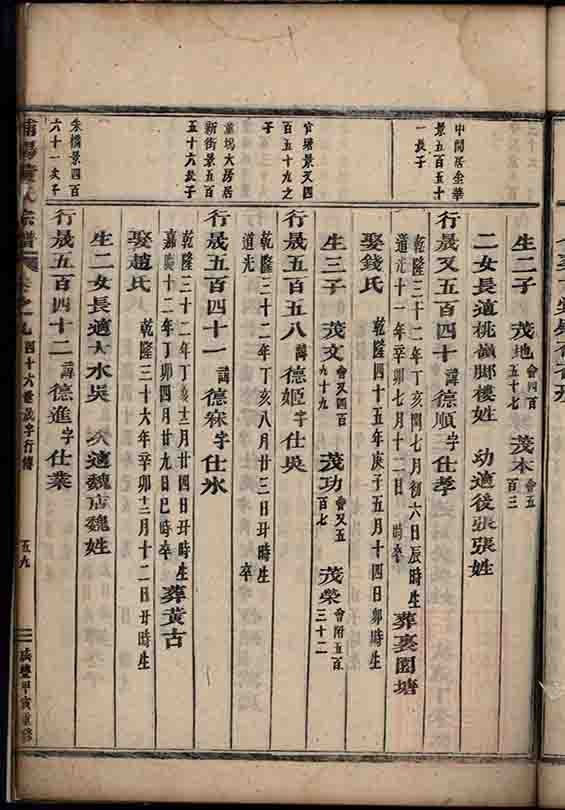 生二子 茂地 會四百五十七 茂本 會五百三
二女長適桃嶺腳樓姓 幼適後張張姓
中間居金華景五百五十一長子
行晟又五百四十 諱德順字仕孝
乾隆三十二年丁亥閏七月初六日辰時生
道光十一年辛卯七月十二日 時卒
葬裏園塘
娶錢氏 乾隆四十五年庚子五月十四日卯時生
生三子 茂文 會又四百九十九 茂功 會又五百七 茂榮 會附五百三十二
官塘景又四百五十九之子
行晟五百五八 諱德姬字仕吳
乾隆三十二年丁亥八月廿三日丑時生
道光 卒
塢大房居新街景五百五十六長子
行晟五百四十一 諱德寀字仕氷
乾隆三十二年丁亥十二月廿四日丑時生
嘉慶十二年丁卯四月廿九日巳時卒
葬黃古
娶趙氏 乾隆三十六年辛卯十二月十二日丑時生
生二女長適大水吳 次適魏店魏姓
朱橋景四百六十一次子
行晟五百四十二 諱德進字仕業
陽 氏宗譜 卷之九 四十六世晟字行傳 五九 咸豐甲寅重修